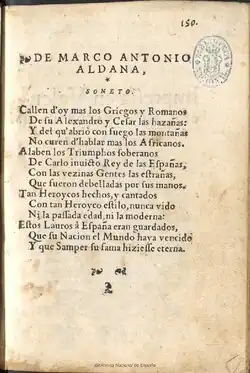 150.
DE MARCO ANTONIO
ALDANA,
SONETO.
Callen d'oy mas los Griegos y Romanos
De su Alexandro y Cesar las hazañas:
Y del qu'abrió con fuego las montañas
No curen d'hablar mas los Africanos.
Alaben los Triumphos soberanos
De Carlo inuicto Rey de las Españas,
Con las vezinas Gentes las estrañas,
Que fueron debelladas por sus manos.
Tan Heroycos hechos, y cantados
Con tan Heroyco estilo, nunca vido
Ni la passada edad, ni la moderna:
Estos Lauros à España eran guardados,
Que su Nacion el Mundo haya vencido
Y que Samper su fama hiziesse eterna.
Biblioteca Nacional de España